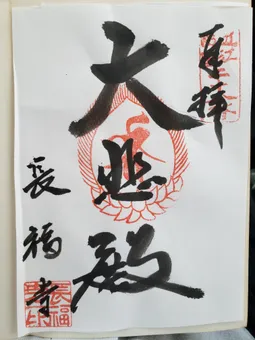 奉拝
大悲殿
長福寺